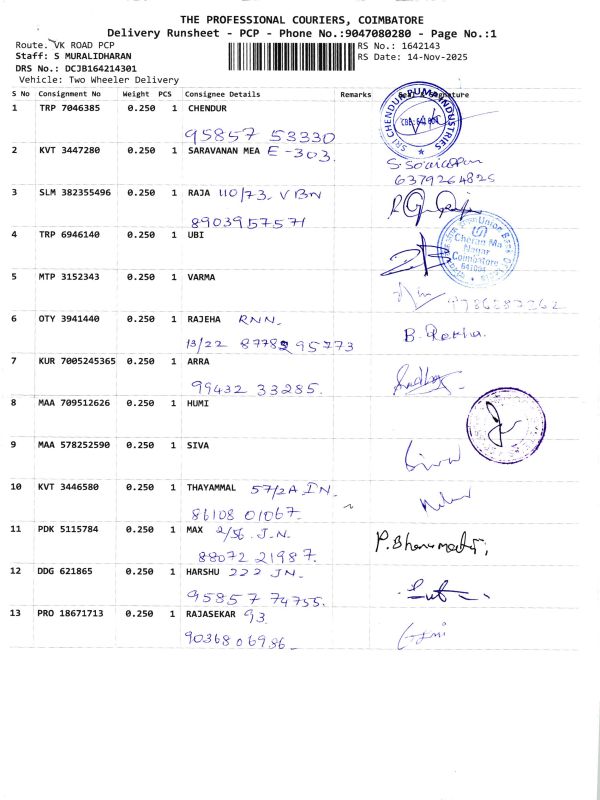 THE PROFESSIONAL COURIERS, COIMBATORE
Delivery Runsheet - PCP - Phone No.:9047080280 - Page No.:1
Route. VK ROAD PCP
RS No.: 1642143
Staff: S MURALIDHARAN
RS Date: 14-Nov-2025
DRS No.: DCJB164214301
Vehicle: Two Wheeler Delivery
S No Consignment No Weight PCS Consignee Details Remarks Signature
1 TRP 7046385 0.250 1 CHENDUR
95857 53330
SRI CHENDUR PUMA INDUSTRIES
2 KVT 3447280 0.250 1 SARAVANAN MEA E-303.
6379264825
3 SLM 382355496 0.250 1 RAJA 110/73. V BN
8903957571
4 TRP 6946140 0.250 1 UBI
Union Bank
Cheran Ma
Nagar
Coimbatore
641035
5 MTP 3152343 0.250 1 VARMA
6 OTY 3941440 0.250 1 RAJEHA RNN.
13/22 87782 95773
B. Rekha.
7 KUR 7005245365 0.250 1 ARRA
99432 33285.
8 MAA 709512626 0.250 1 HUMI
9 MAA 578252590 0.250 1 SIVA
Siva
10 KVT 3446580 0.250 1 THAYAMMAL 57/2A IN.
86108 01067.
11 PDK 5115784 0.250 1 MAX 2/56. J.N.
88072 21987.
P. Bhanumathi,
12 DDG 621865 0.250 1 HARSHU 222 JN.
95857 74755.
13 PRO 18671713 0.250 1 RAJASEKAR 93.
9036806986